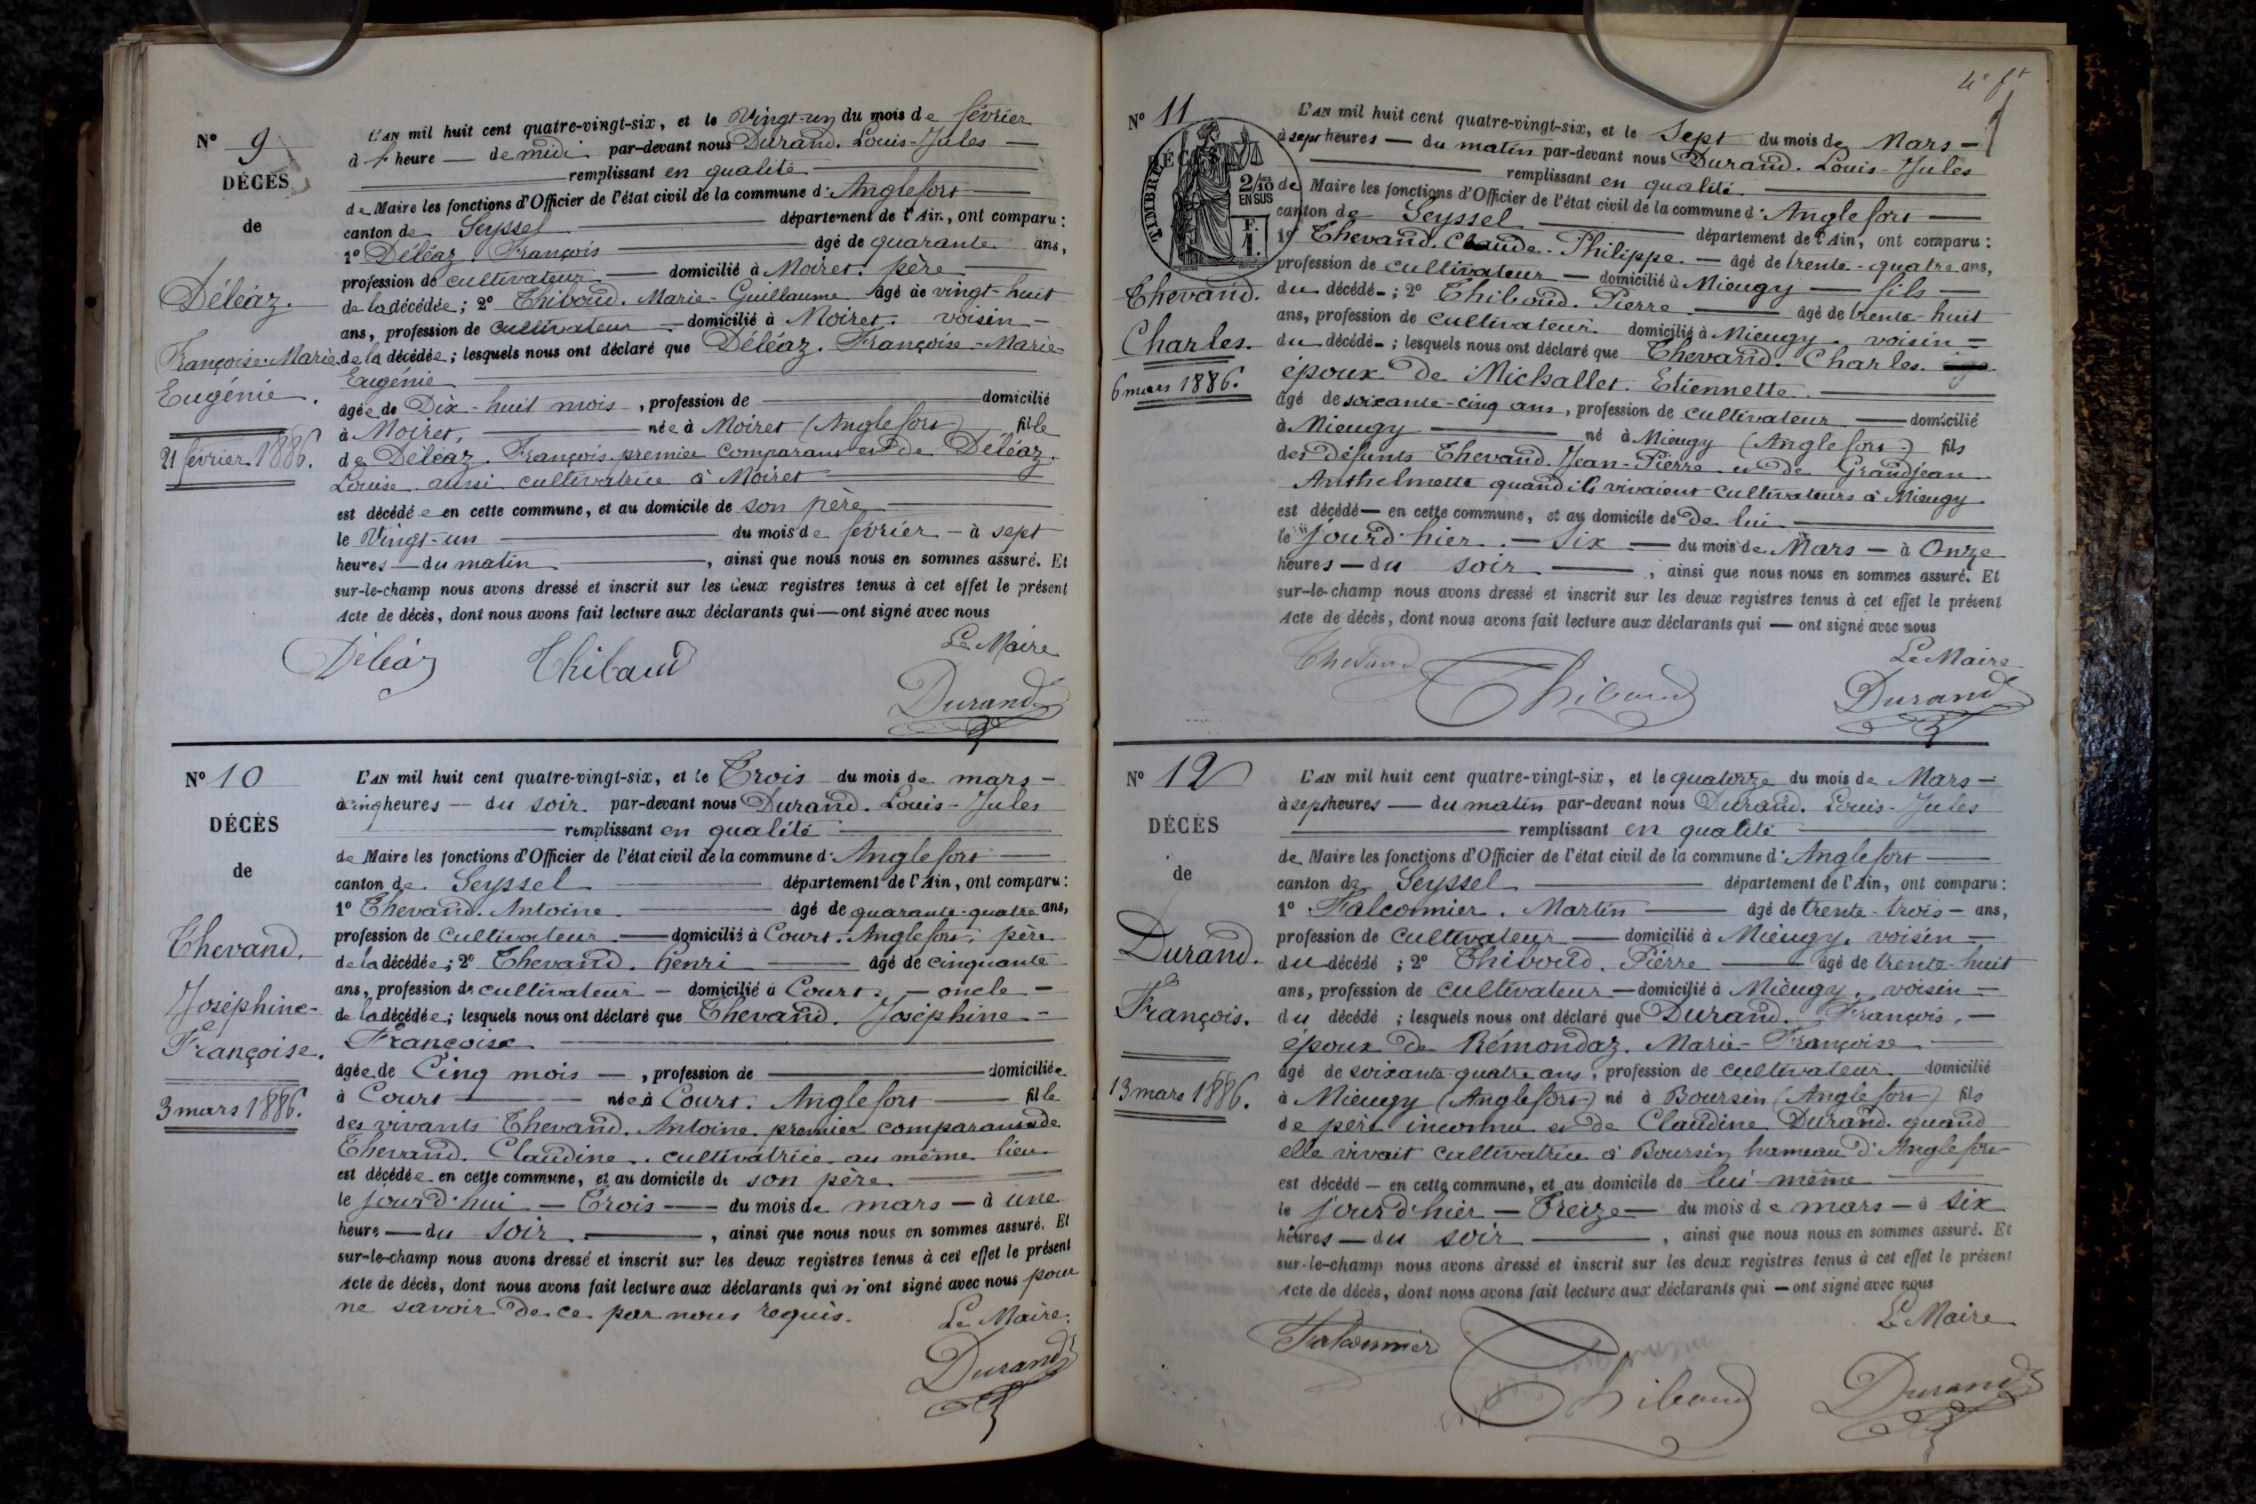 Nº 9
DÉCÈS
de
Déléaz.
Françoise-Marie
Eugénie.
21 février 1886.
L'AN mil huit cent quatre-vingt-six, et le Vingt-un du mois de février
à heure — de midi par-devant nous Durand. Louis-Jules —
remplissant en qualité
de Maire les fonctions d'Officier de l'état civil de la commune d'Anglefort
canton de Seyssel département de l'Ain, ont comparu :
1º Déléaz. François âgé de quarante ans,
profession de cultivateur — domicilié à Moiret. père
de la décédée ; 2º Thiboud. Marie-Guillaume âgé de vingt-huit
ans, profession de cultivateur — domicilié à Moiret. voisin —
de la décédée ; lesquels nous ont déclaré que Déléaz. Françoise-Marie-
Eugénie
âgée de Dix-huit mois —, profession de domicilié
à Moiret, née à Moiret (Anglefort) fille
de Déléaz. François premier comparant et de Déléaz.
Louise aussi cultivatrice à Moiret
est décédée en cette commune, et au domicile de son père
le Vingt-un du mois de février — à sept
heures — du matin, ainsi que nous nous en sommes assuré. Et
sur-le-champ nous avons dressé et inscrit sur les deux registres tenus à cet effet le présent
Acte de décès, dont nous avons fait lecture aux déclarants qui — ont signé avec nous
Le Maire
Déléaz Thibaud
Durand
Nº 10
DÉCÈS
de
Thevand.
Joséphine-
Françoise.
3 mars 1886.
L'AN mil huit cent quatre-vingt-six, et le Trois du mois de mars —
à cinq heures — du soir par-devant nous Durand. Louis-Jules
remplissant en qualité
de Maire les fonctions d'Officier de l'état civil de la commune d'Anglefort —
canton de Seyssel département de l'Ain, ont comparu :
1º Thevand. Antoine âgé de quarante-quatre ans,
profession de cultivateur — domicilié à Court. Anglefort, père
de la décédée ; 2º Thevand. Henri âgé de cinquante
ans, profession de cultivateur — domicilié à Court. — oncle —
de la décédée ; lesquels nous ont déclaré que Thevand. Joséphine-
Françoise
âgée de Cinq mois —, profession de domiciliée
à Court née à Court. Anglefort fille
des vivants Thevand. Antoine premier comparant et de
Thevand. Claudine. cultivatrice au même lieu
est décédée en cette commune, et au domicile de son père
le jourd'hui — Trois — du mois de mars — à une
heure — du soir, ainsi que nous nous en sommes assuré. Et
sur-le-champ nous avons dressé et inscrit sur les deux registres tenus à cet effet le présent
Acte de décès, dont nous avons fait lecture aux déclarants qui n'ont signé avec nous pour
ne savoir de ce par nous requis.
Le Maire.
Durand
Nº 11
DÉC
TIMBRE
2/10 EN SUS
F. 1.
Thevand.
Charles.
6 mars 1886.
L'AN mil huit cent quatre-vingt-six, et le Sept du mois de Mars —
à sept heures — du matin par-devant nous Durand. Louis-Jules
remplissant en qualité
de Maire les fonctions d'Officier de l'état civil de la commune d'Anglefort
canton de Seyssel département de l'Ain, ont comparu :
1º Thevand. Claude-Philippe. — âgé de trente-quatre ans,
profession de cultivateur — domicilié à Mieugy — fils —
du décédé ; 2º Thiboud. Pierre âgé de trente-huit
ans, profession de cultivateur domicilié à Mieugy. voisin —
du décédé ; lesquels nous ont déclaré que Thevand. Charles.
époux de Michallet. Etiennette
âgé de soixante-cinq ans, profession de cultivateur domicilié
à Mieugy né à Mieugy (Anglefort) fils
des défunts Thevand. Jean-Pierre et de Grandjean
Anthelmette quand ils vivaient cultivateurs à Mieugy
est décédé — en cette commune, et au domicile de de lui
le jourd'hier — Six — du mois de Mars — à Onze
heures — du soir, ainsi que nous nous en sommes assuré. Et
sur-le-champ nous avons dressé et inscrit sur les deux registres tenus à cet effet le présent
Acte de décès, dont nous avons fait lecture aux déclarants qui — ont signé avec nous
Le Maire
Thevand Thiboud
Durand
Nº 12
DÉCÈS
de
Durand.
François.
13 mars 1886.
L'AN mil huit cent quatre-vingt-six, et le quatorze du mois de Mars —
à sept heures — du matin par-devant nous Durand. Louis-Jules
remplissant en qualité
de Maire les fonctions d'Officier de l'état civil de la commune d'Anglefort —
canton de Seyssel département de l'Ain, ont comparu :
1º Falconnier. Martin âgé de trente-trois — ans,
profession de cultivateur — domicilié à Mieugy. voisin —
du décédé ; 2º Thiboud. Pierre âgé de trente-huit
ans, profession de cultivateur — domicilié à Mieugy. voisin —
du décédé ; lesquels nous ont déclaré que Durand. François. —
époux de Rémondaz. Marie-Françoise
âgé de soixante-quatre ans, profession de cultivateur domicilié
à Mieugy (Anglefort) né à Boursin (Anglefort) fils
de père inconnu et de Claudine Durand. quand
elle vivait cultivatrice à Boursin hameau d'Anglefort
est décédé — en cette commune, et au domicile de lui-même
le jourd'hier — Treize — du mois de mars — à six
heures — du soir, ainsi que nous nous en sommes assuré. Et
sur-le-champ nous avons dressé et inscrit sur les deux registres tenus à cet effet le présent
Acte de décès, dont nous avons fait lecture aux déclarants qui — ont signé avec nous
Le Maire
Falconnier Thiboud
Durand